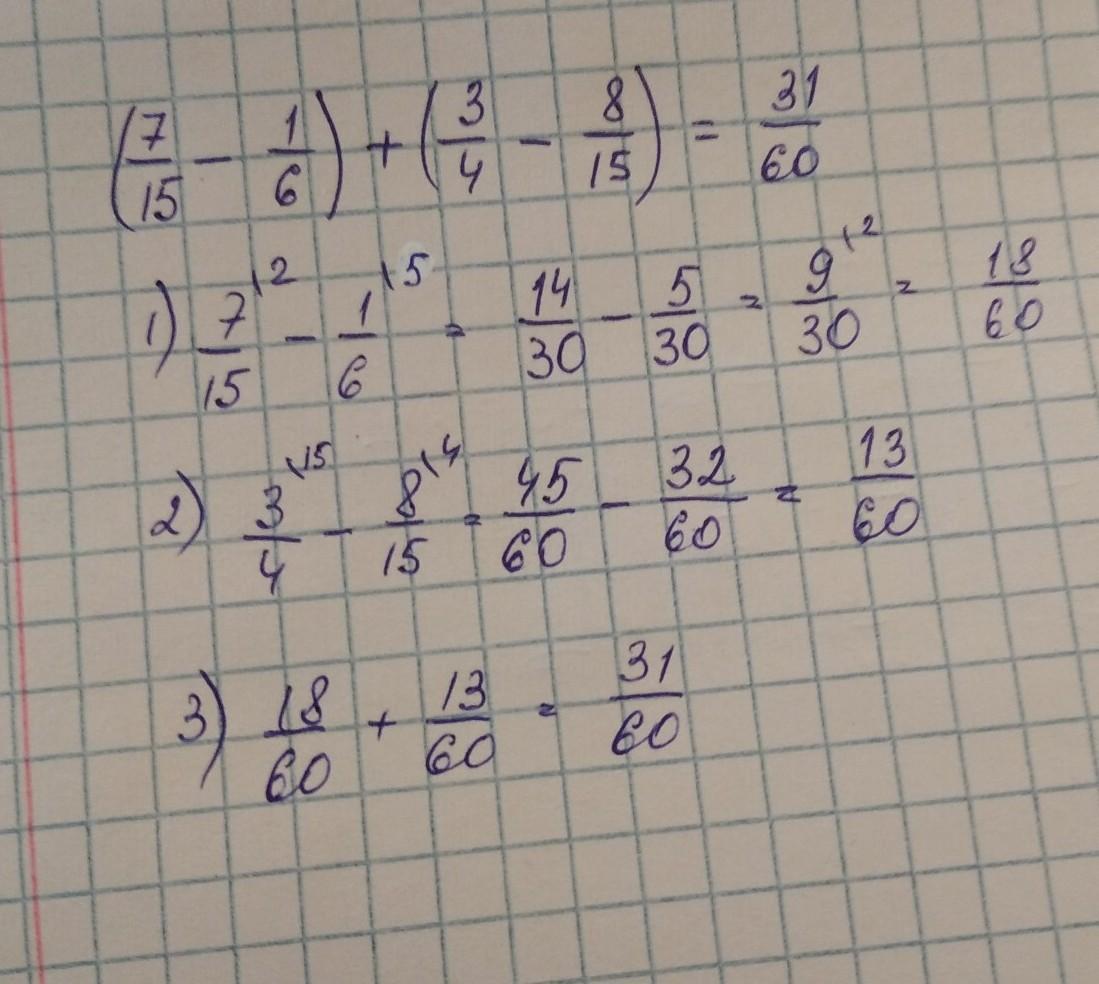 (7/15 - 1/6) + (3/4 - 8/15) = 31/60
1) 7\2/15 - 1\5/6 = 14/30 - 5/30 = 9\2/30 = 18/60
2) 3\15/4 - 8\4/15 = 45/60 - 32/60 = 13/60
3) 18/60 + 13/60 = 31/60